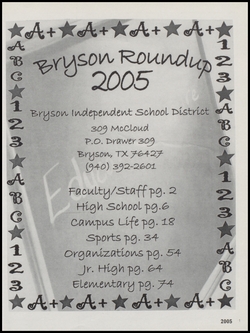 ★ A+ ★ A+ ★ A+ ★ A+ ★
ABC
★
123
★
ABC
★
123
Bryson Roundup
2005
Bryson Independent School District
309 McCloud
P.O. Drawer 309
Bryson, TX 76427
(940) 392-2601
Faculty/Staff pg. 2
High School pg.6
Campus Life pg. 18
Sports pg. 34
Organizations pg. 54
Jr. High pg. 64
Elementary pg. 74
123
★
ABC
★
123
★
ABC
★ A+ ★ A+ ★ A+ ★ A+ ★
2005